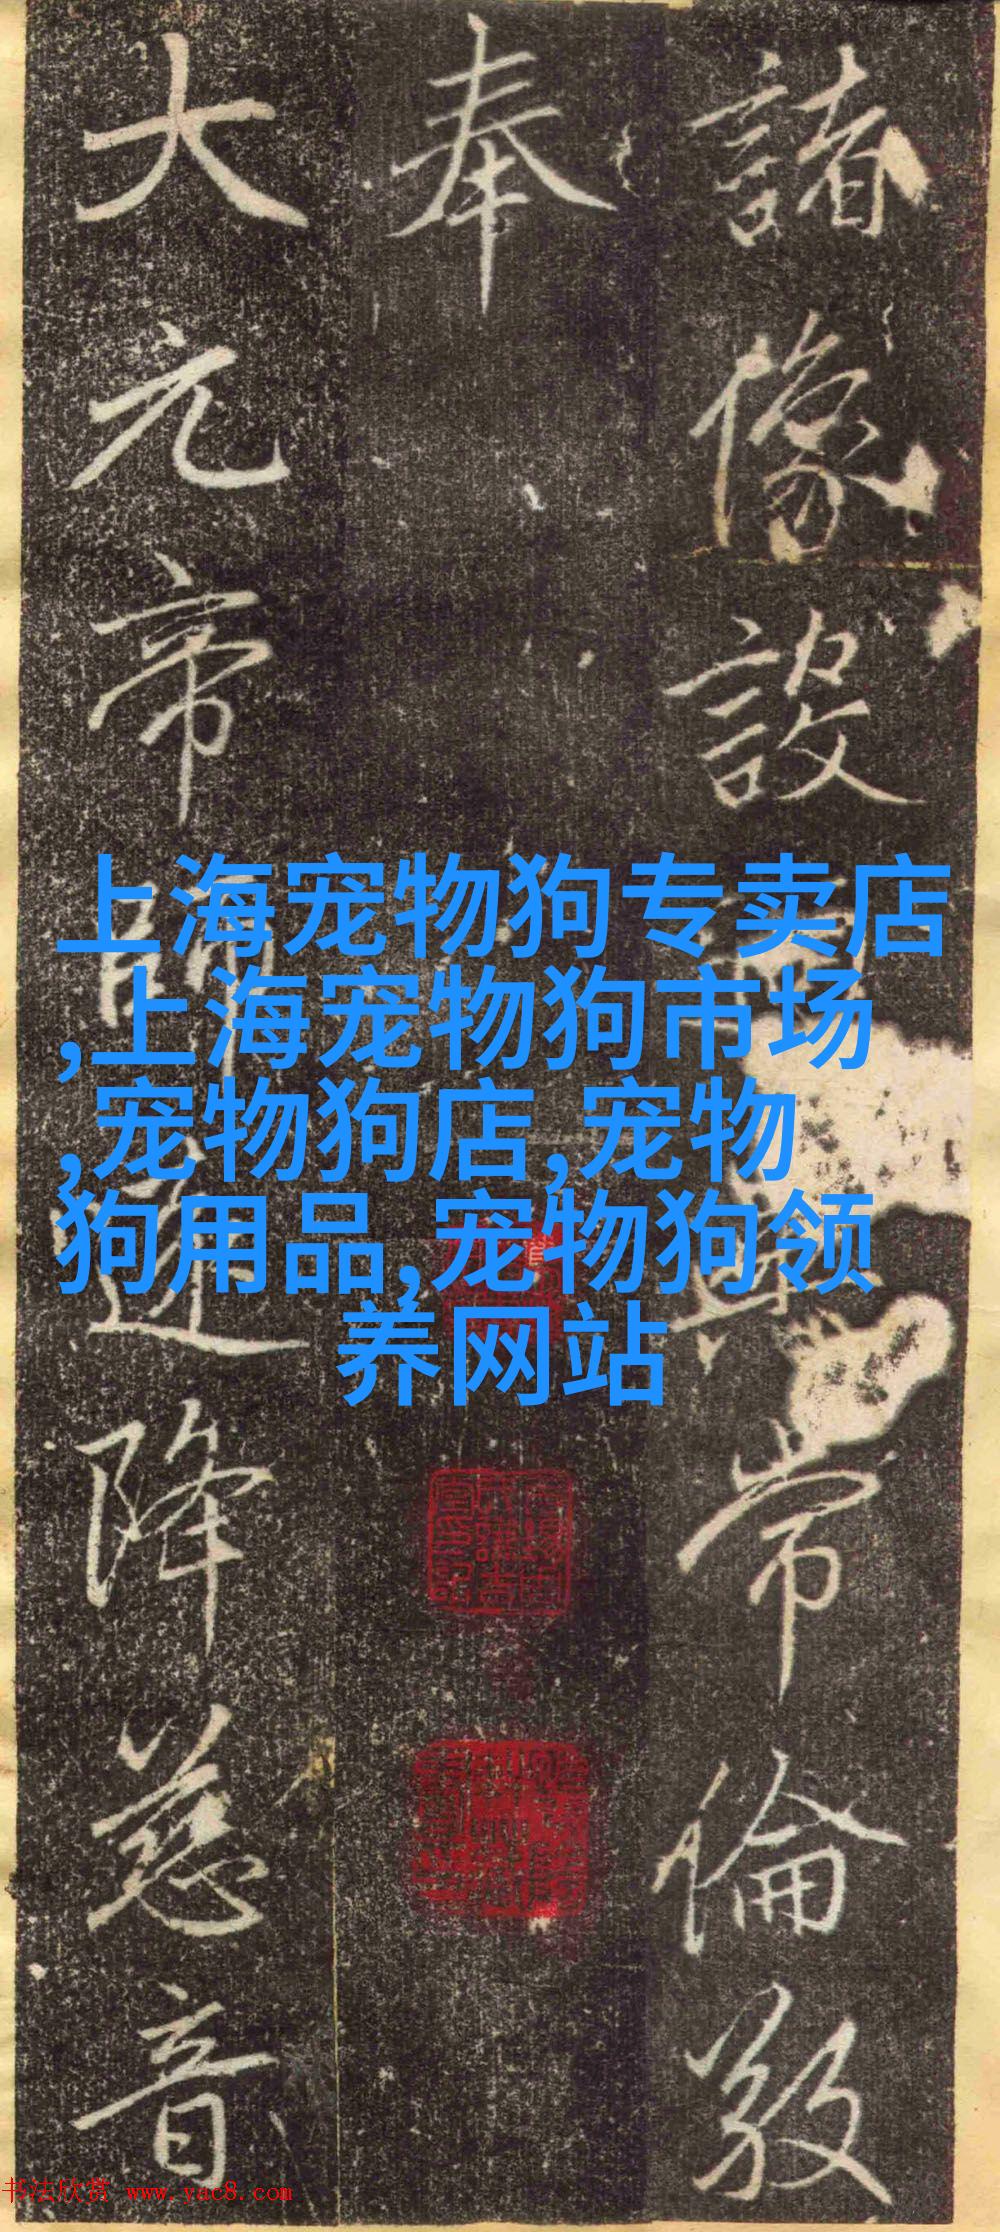 諸像設常倫
奉
大元帝師降慈音
上海宠物狗专卖店
,上海宠物狗市场
,宠物狗店,宠物
狗用品,宠物狗领
养网站
书法欣赏 www.yac8.com